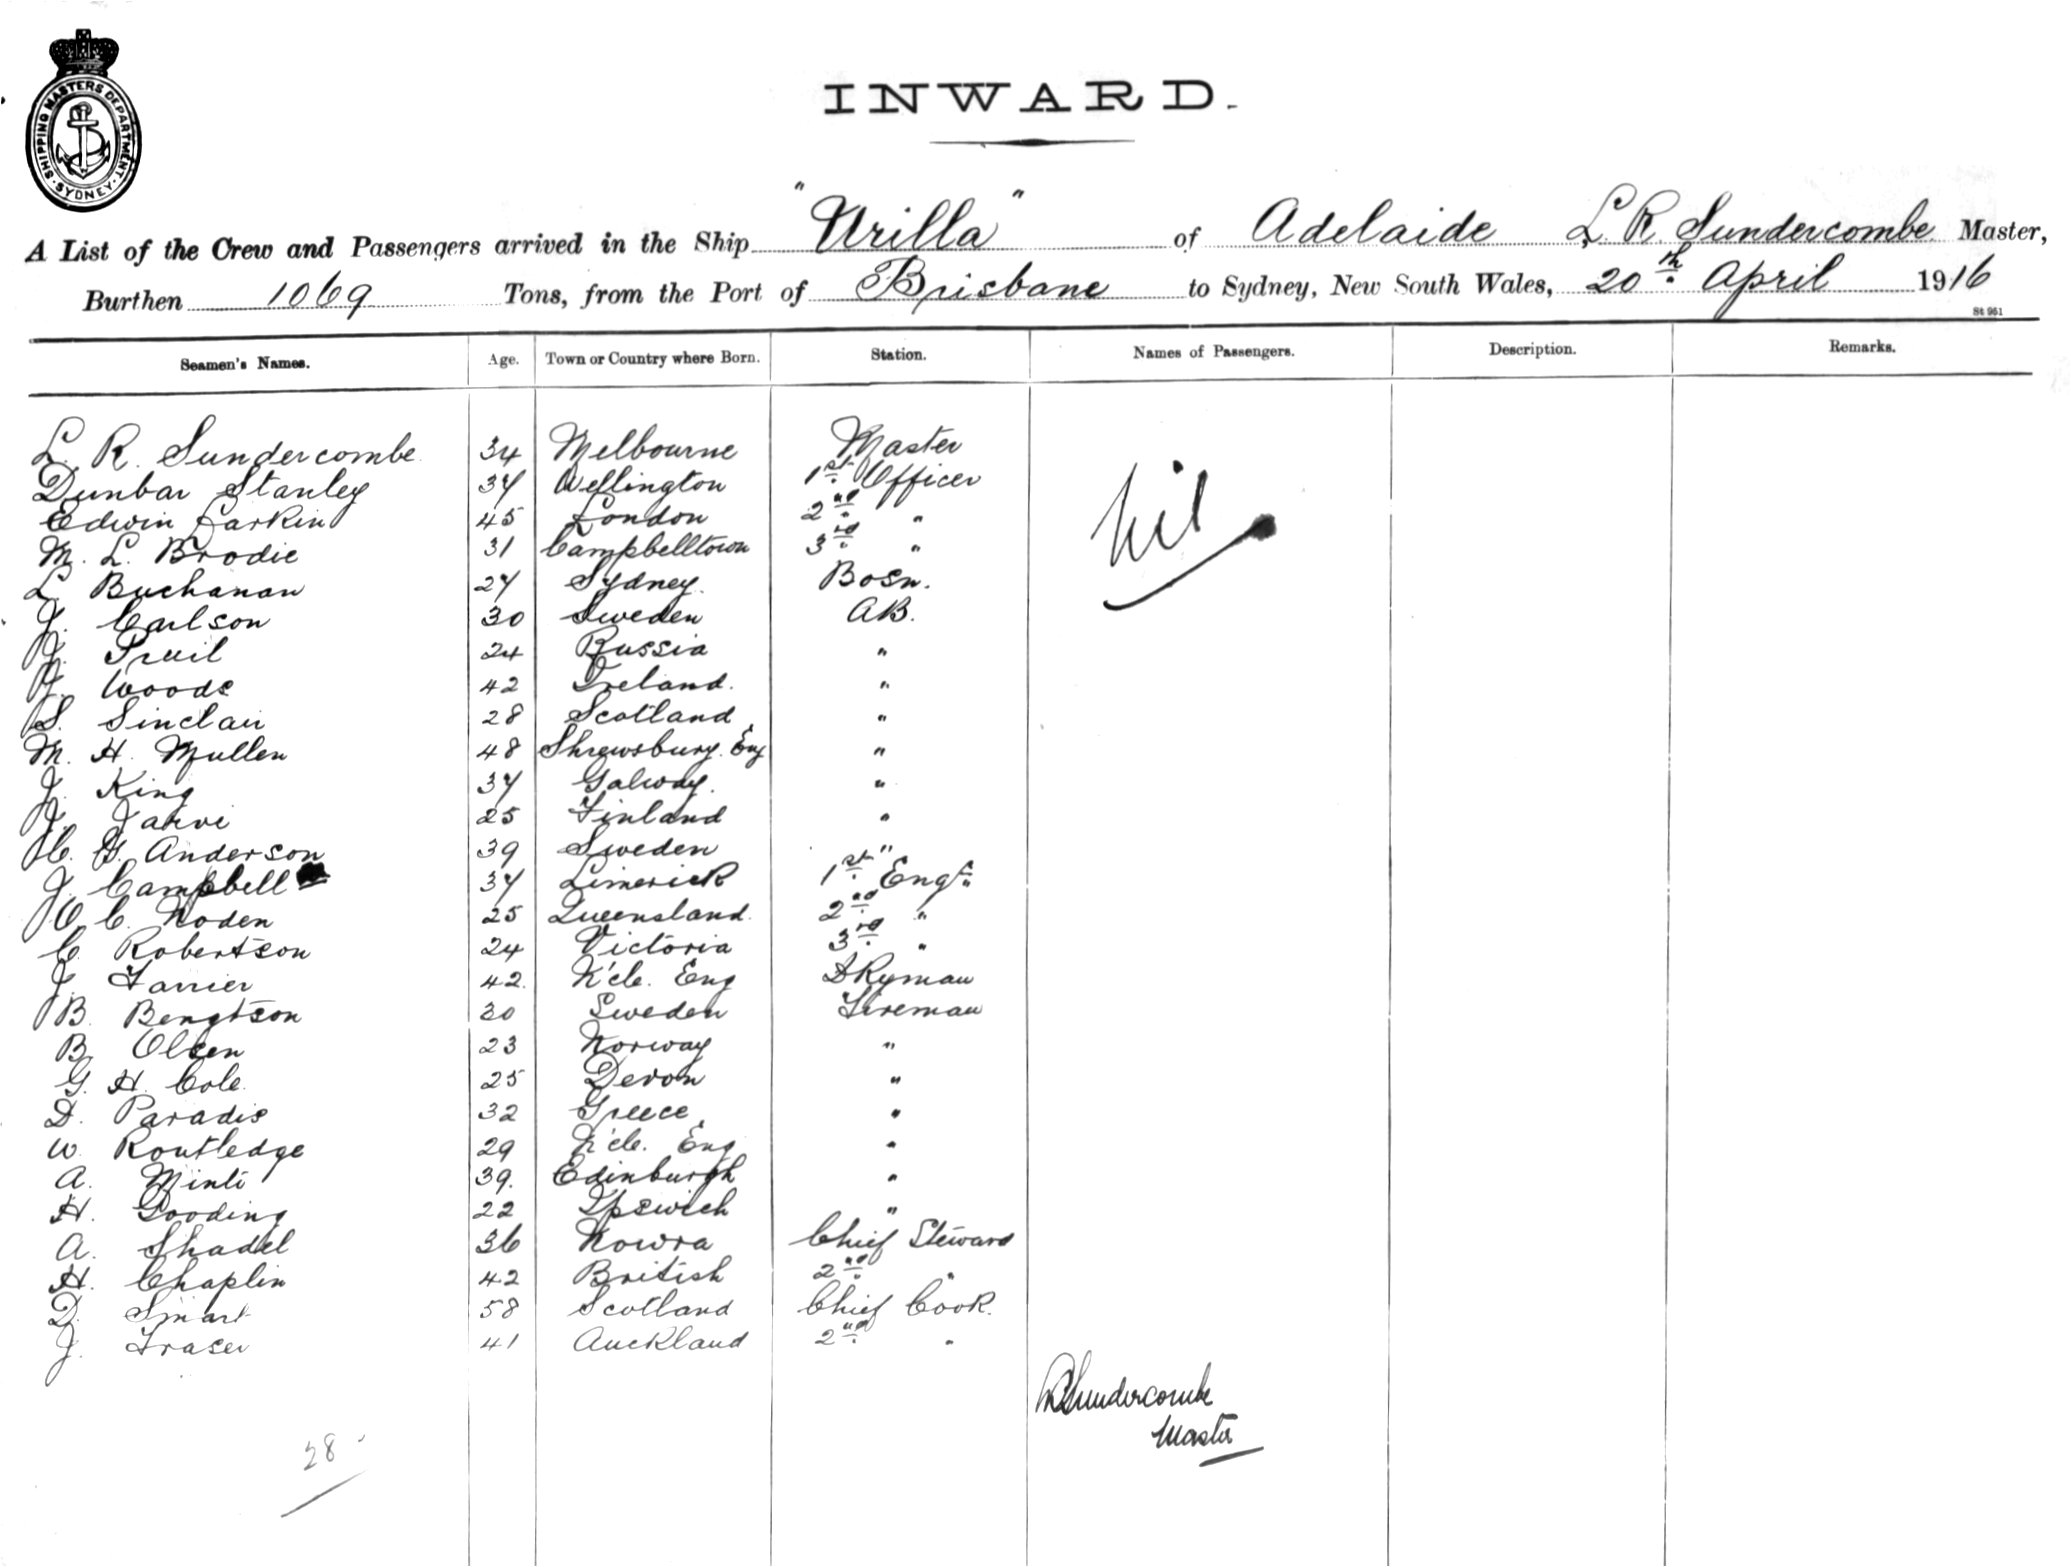 SHIPPING MASTERS DEPARTMENT. SYDNEY.
INWARD.
A List of the Crew and Passengers arrived in the Ship "Urilla" of Adelaide L. R. Sundercombe Master,
Burthen 1069 Tons, from the Port of Brisbane to Sydney, New South Wales, 20th April 1916
St 961
Seamen's Names. Age. Town or Country where Born. Station. Names of Passengers. Description. Remarks.
L. R. Sundercombe 34 Melbourne Master
Dunbar Stanley 37 Wellington 1st Officer
Edwin Larkin 45 London 2nd "
M. L. Brodie 31 Campbelltown 3rd "
Nil
L. Buchanan 27 Sydney. Bosn.
J. Carlson 30 Sweden AB.
J. 24 Russia "
J. Woods 42 Ireland. "
S. Sinclair 28 Scotland "
M. H. Mullen 48 Shrewsbury. Eng "
J. King 37 Galway. "
J. Jarvi 25 Finland "
C. G. Anderson 39 Sweden "
J. Campbell 37 Limerick 1st Engr.
C. Noden 25 Queensland. 2nd "
C. Robertson 24 Victoria 3rd "
J. Farrier 42. N'cle. Eng DKyman
B. Bengtson 30 Sweden Fireman
B. Olsen 23 Norway "
G. H. Cole 25 Devon "
D. Paradis 32 Greece "
W. Routledge 29 N'cle. Eng "
A. Minti 39. Edinburgh "
H. Gooding 22 Ipswich "
A. Shadel 36 Nowra Chief Steward
H. Chaplin 42 British 2nd "
D. Smart 58 Scotland Chief Cook.
J. Fraser 41 Auckland 2nd "
Sundercombe
Master
28